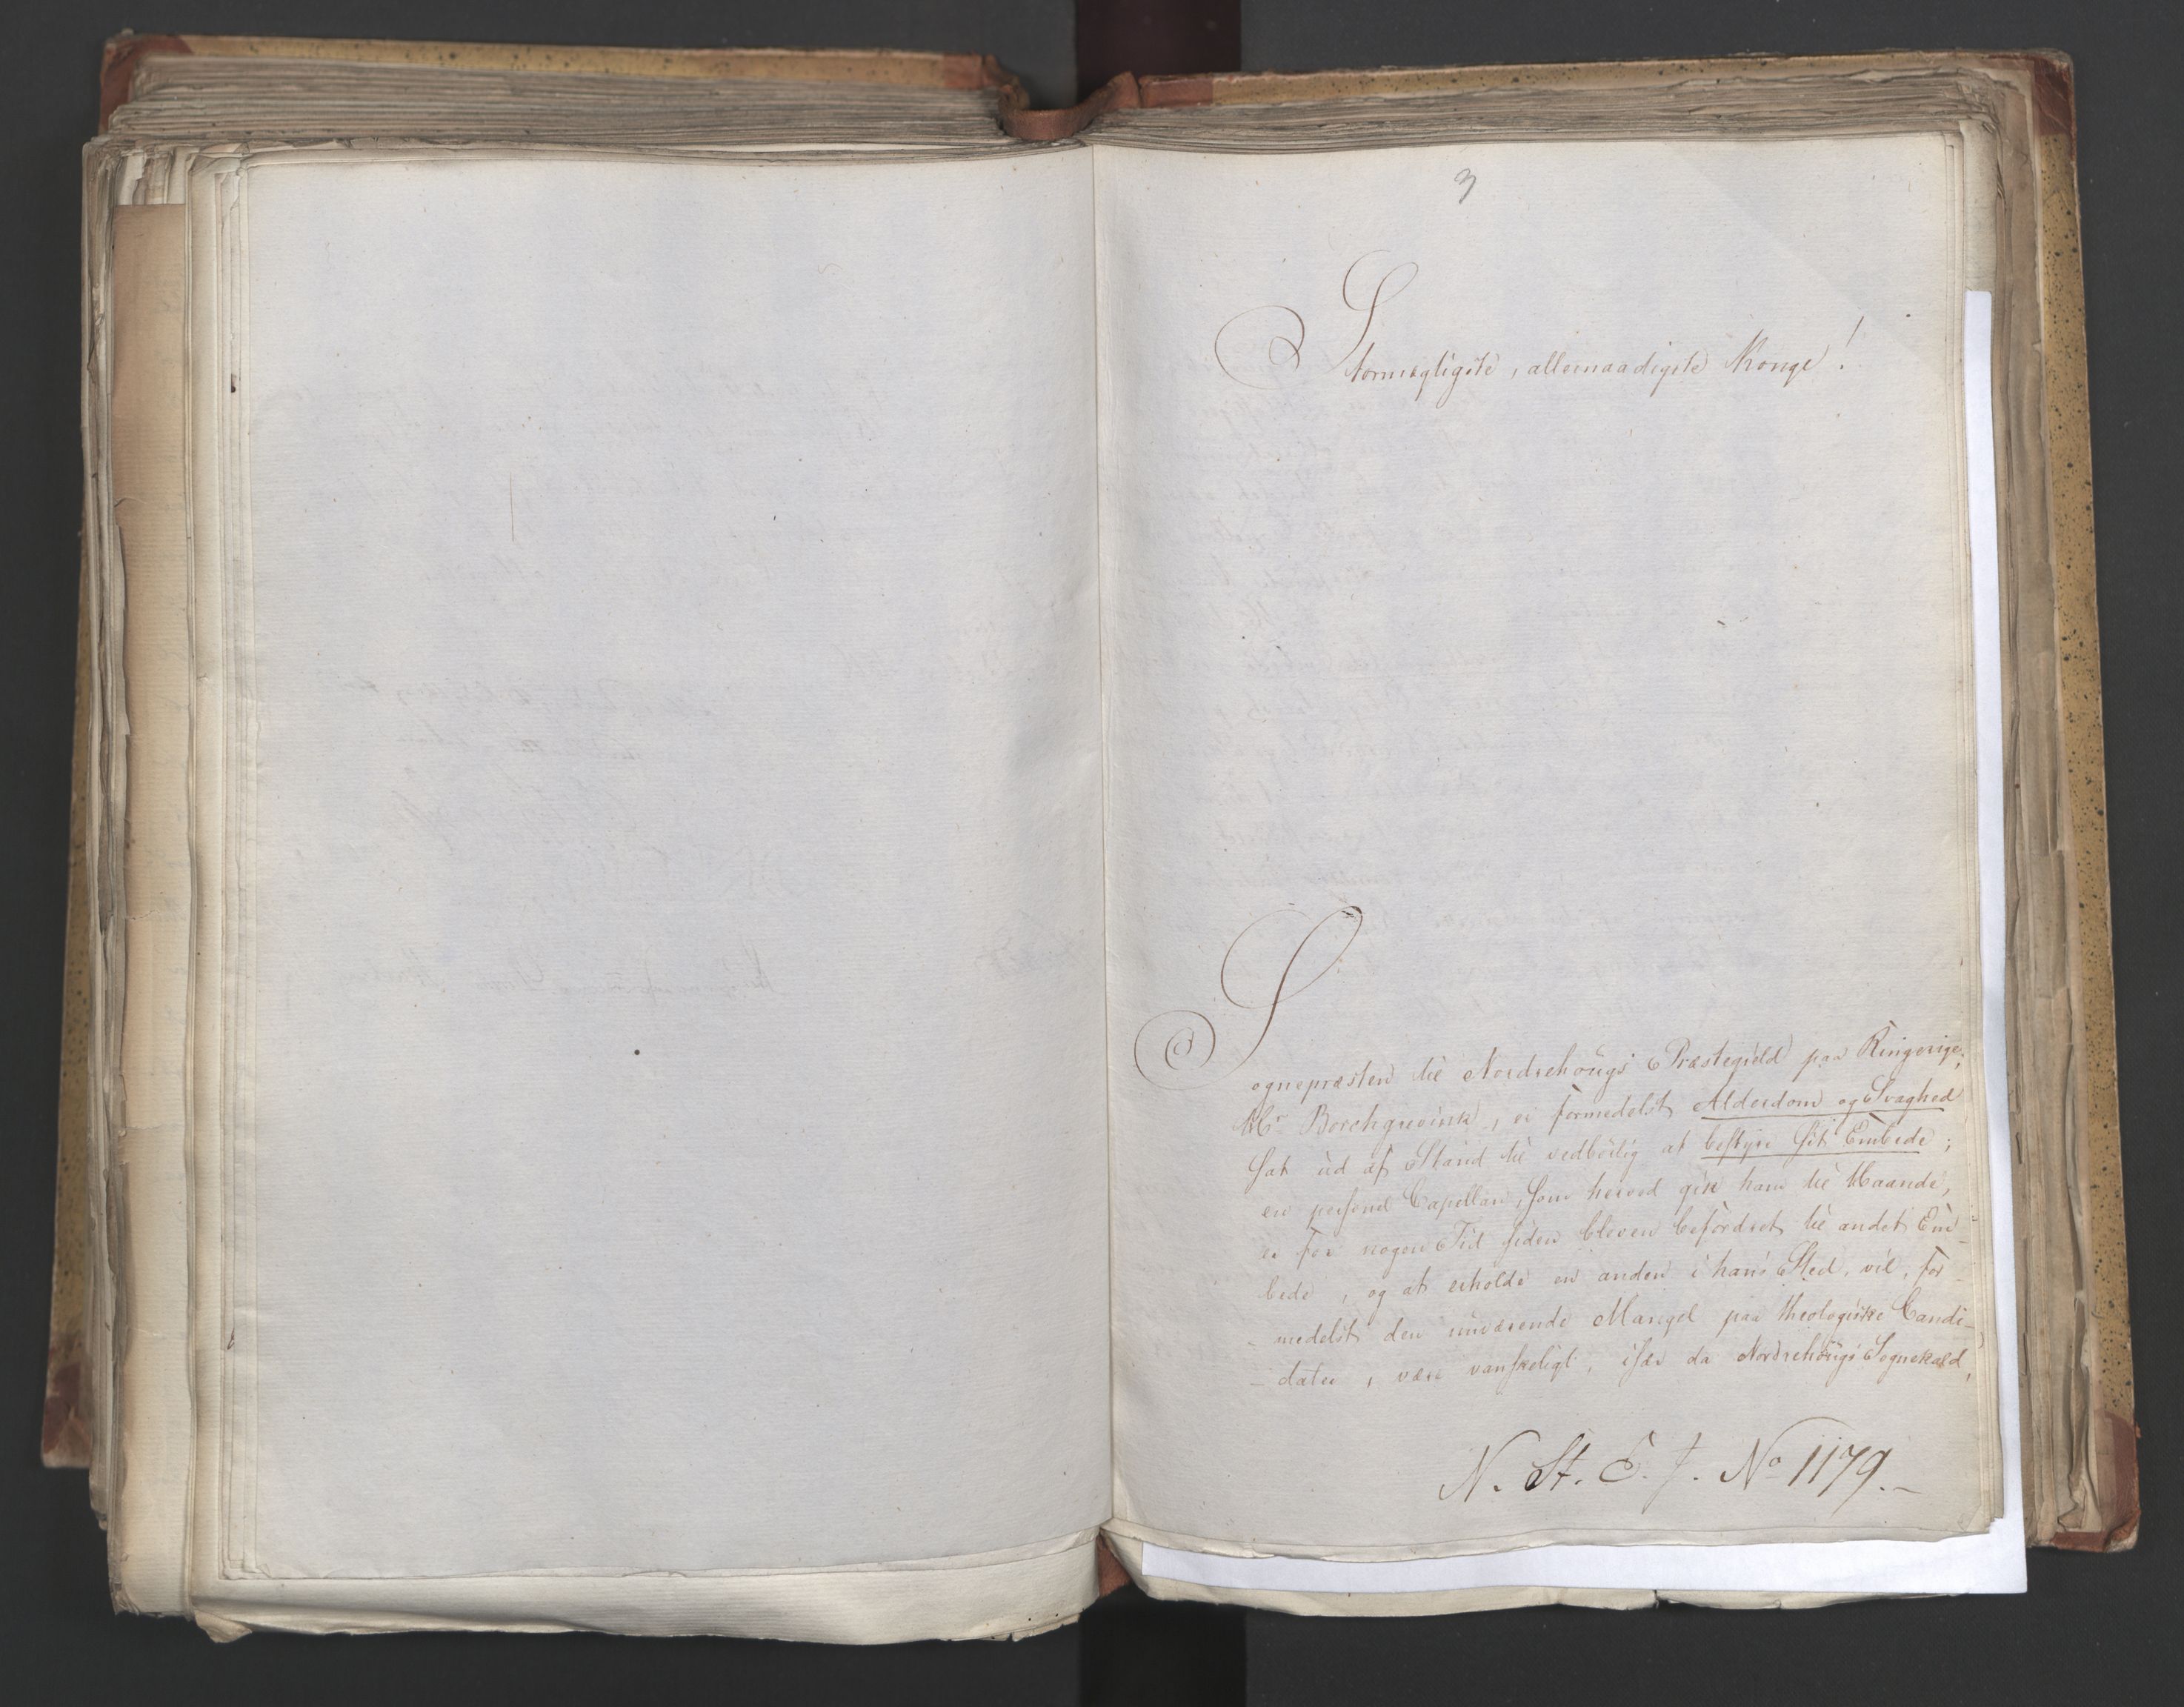 3
Stormægtigste, allernaadigste Konge!
Sognepræsten til Nordrehougs Præstegield paa Ringerige,
Hr Borchgrevink, er formedelst Alderdom og Svaghed
sat ud af Stand til vedbørlig at bestyre sit Embede;
en personel Capellan, som herved gik ham til Haande,
er for nogen Tid siden bleven befordret til andet Em-
bede, og at erholde en anden i hans Sted, vil, for-
-medelst den nuværende Mangel paa theologiske Candi-
-dater, være vanskeligt, især da Nordrehougs Sognekald,
N. St. E. J. No 1179.-